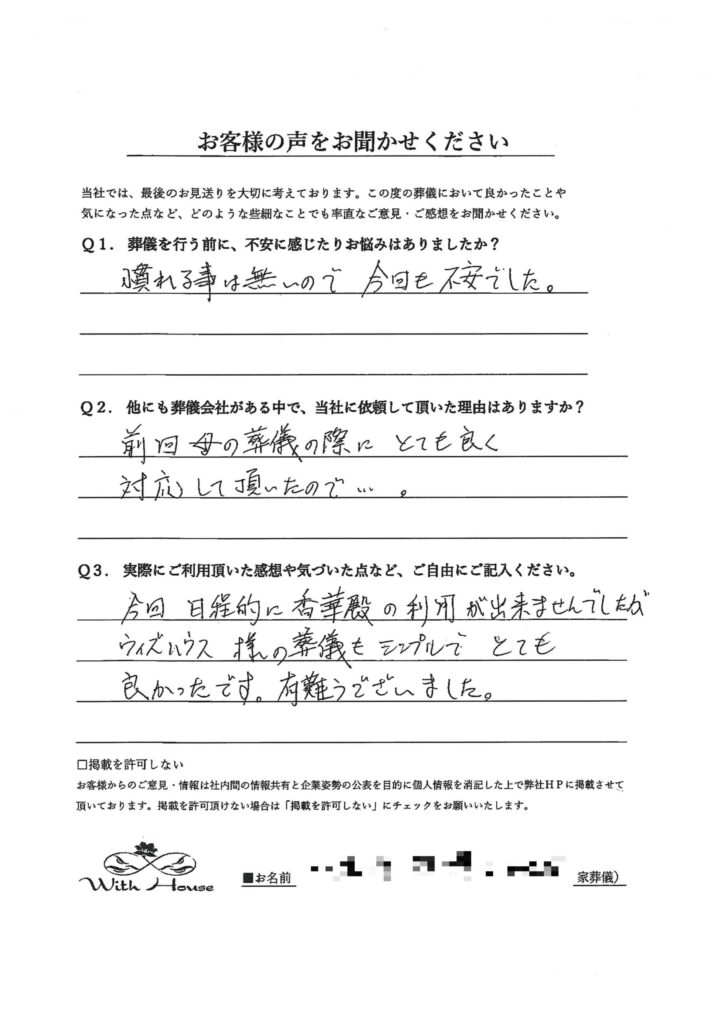 お客様の声をお聞かせください
当社では、最後のお見送りを大切に考えております。この度の葬儀において良かったことや
気になった点など、どのような些細なことでも率直なご意見・ご感想をお聞かせください。
Q1. 葬儀を行う前に、不安に感じたりお悩みはありましたか?
慣れる事は無いので 今回も不安でした。
Q2. 他にも葬儀会社がある中で、当社に依頼して頂いた理由はありますか?
前回母の葬儀の際に とても良く
対応して頂いたので… 。
Q3. 実際にご利用頂いた感想や気づいた点など、ご自由にご記入ください。
今回 日程的に香華殿の利用が出来ませんでしたが
ウィズハウス 様の葬儀もシンプルで とても
良かったです。有難うございました。
□掲載を許可しない
お客様からのご意見・情報は社内間の情報共有と企業姿勢の公表を目的に個人情報を消記した上で弊社HPに掲載させて
頂いております。掲載を許可頂けない場合は「掲載を許可しない」にチェックをお願いいたします。
With House
■お名前 家葬儀)